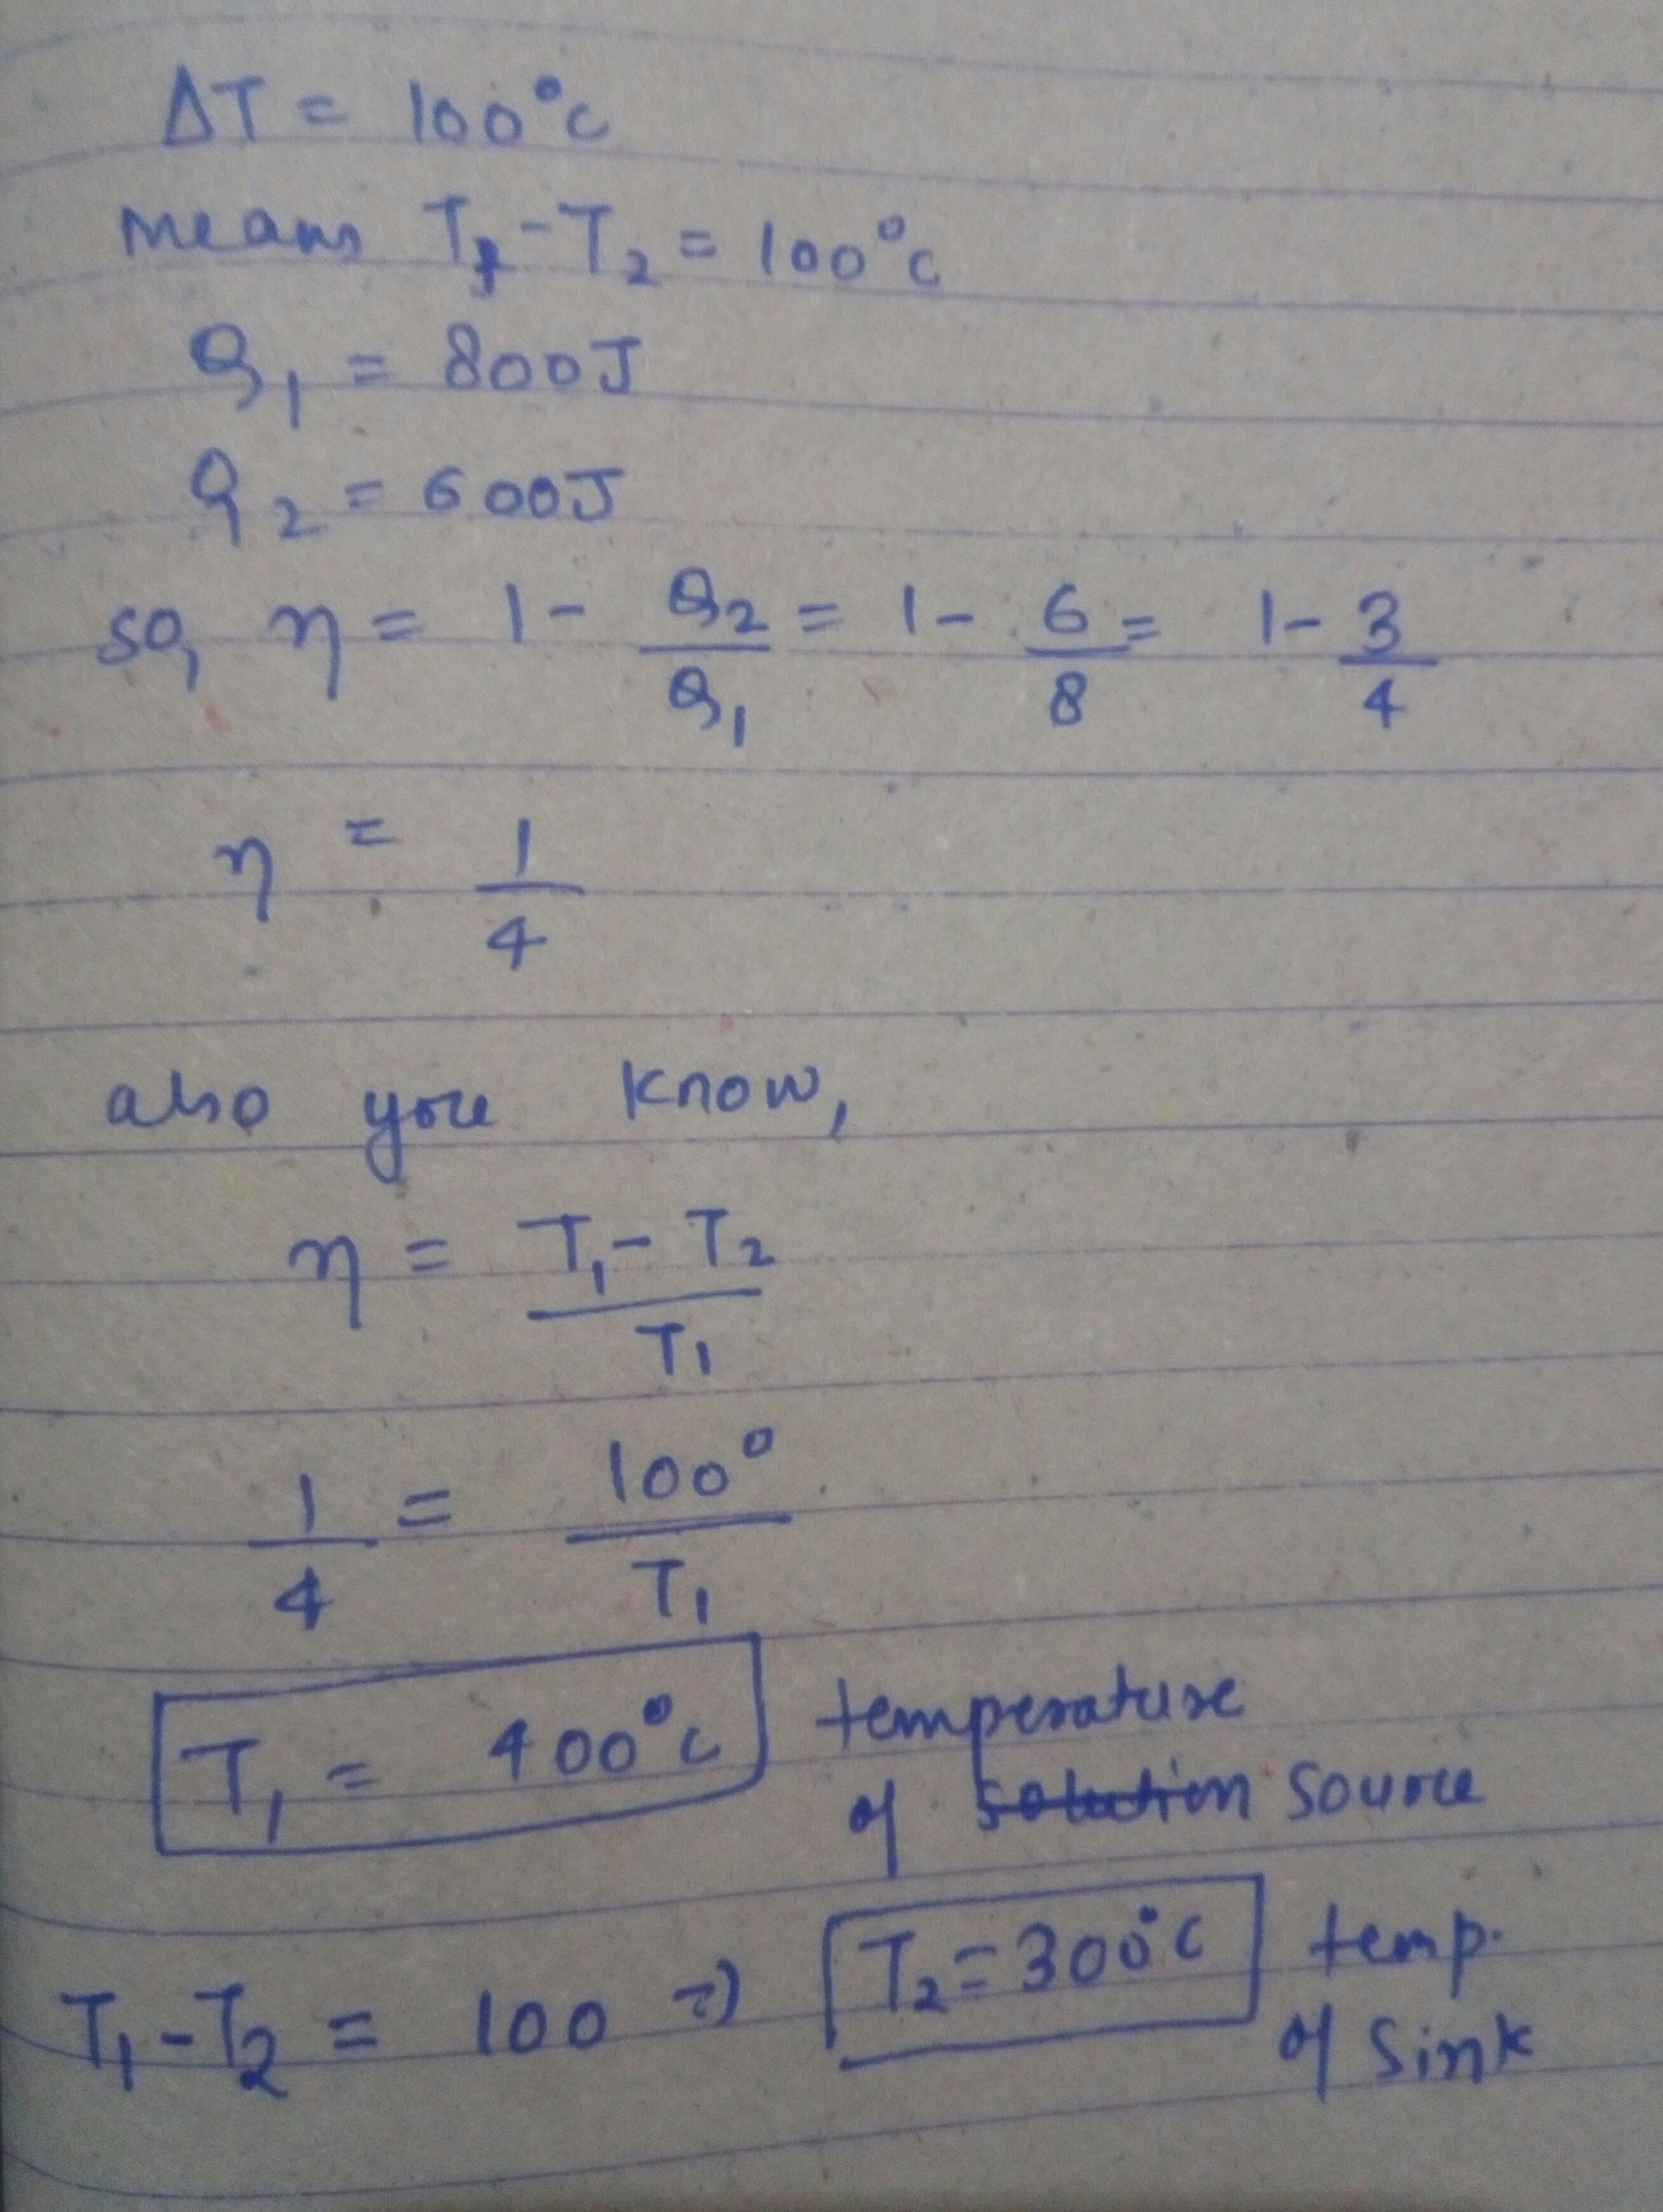 ΔT = 100°C
means T₁-T₂ = 100°C
Q₁ = 800J
Q₂ = 600J
so, η = 1 - Q₂/Q₁ = 1 - 6/8 = 1 - 3/4
η = 1/4
also you know,
η = T₁ - T₂/T₁
1/4 = 100°/T₁
T₁ = 400°C temperature
of solution source
T₁-T₂ = 100 ⇒ T₂ = 300°C temp.
of sink